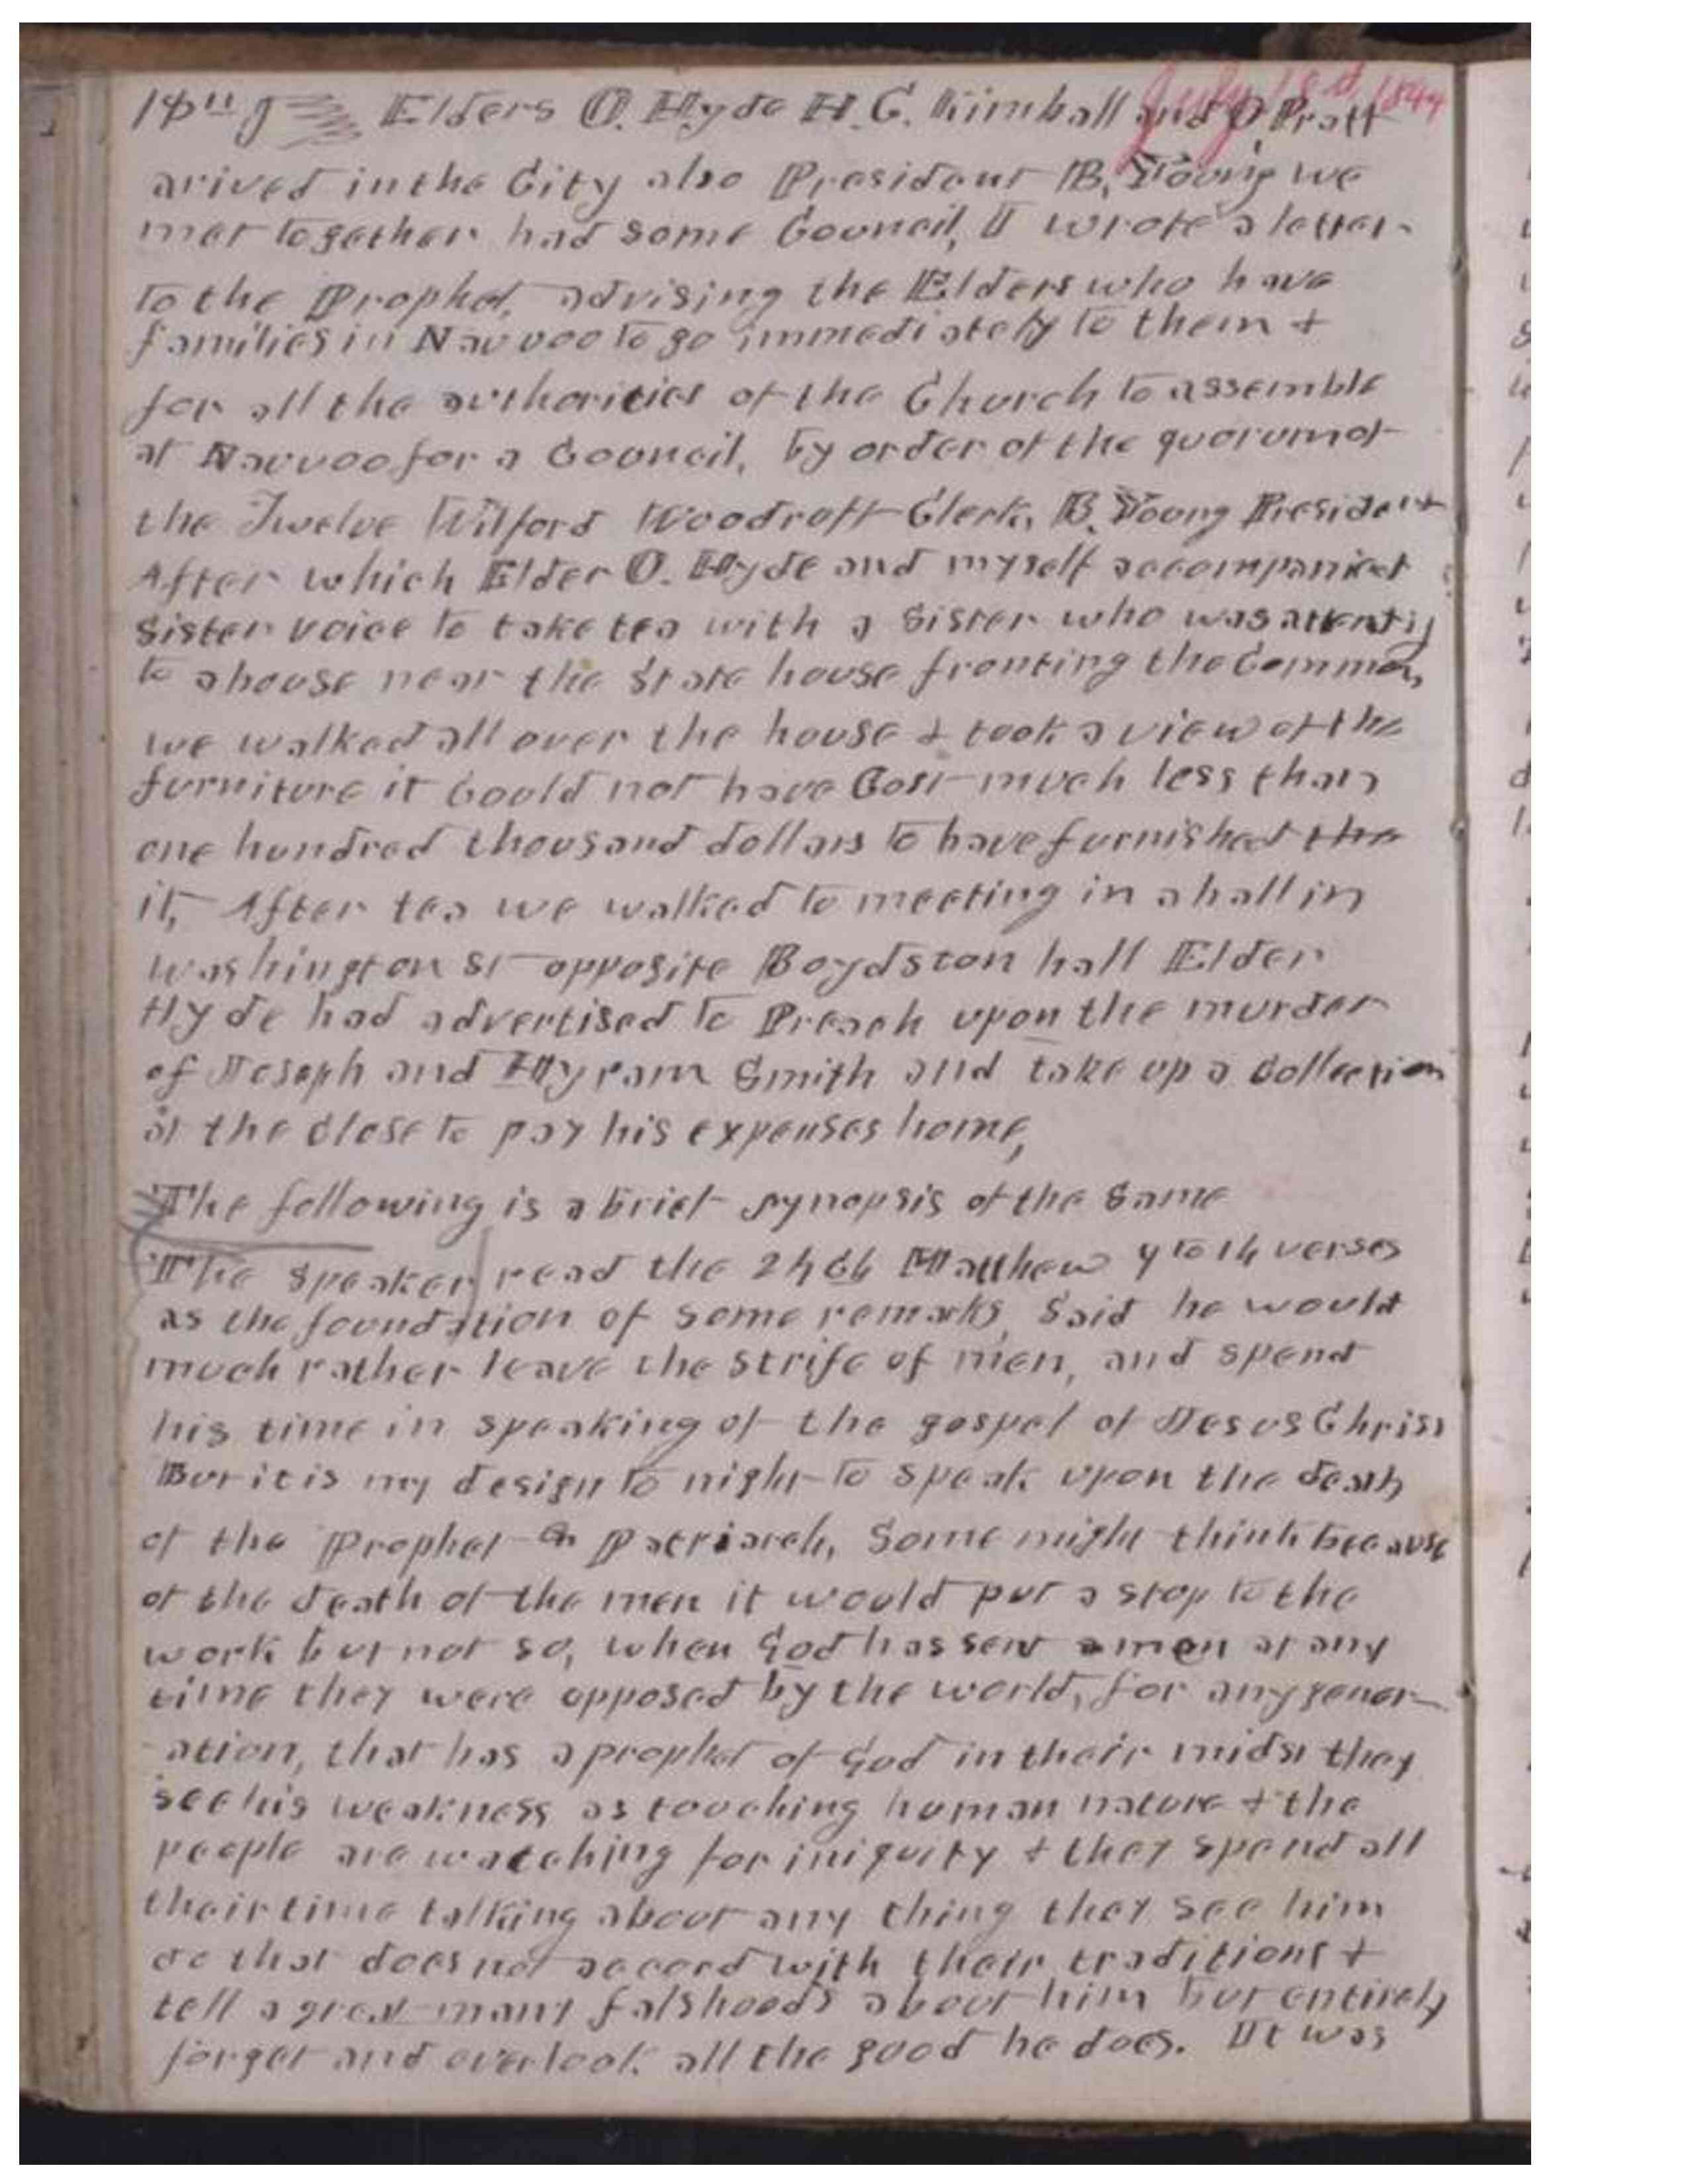 July 18th 1844
18th Elders O. Hyde H. C. Kimball and O Pratt
arived in the City also President B. Young we
met together had some Council, I wrote a letter
to the Prophet, advising the Elders who have
families in Nauvoo to go immediately to them +
for all the authorities of the Church to assemble
at Nauvoo for a Council, by order of the quorum of
the Twelve Wilford Woodruff Clerk, B. Young President
After which Elder O. Hyde and myself accompanied
Sister voice to take tea with a Sister who was attentig
to a house near the State house fronting the Common,
we walked all over the house + took a view of the
furniture it Could not have Cost much less than
one hundred thousand dollars to have furnished the
it, After tea we walked to meeting in a hall in
washington St opposite Boydston hall Elder
Hyde had advertised to Preach upon the murder
of Joseph and Hyram Smith and take up a Collection
at the Close to pay his expenses home,
The following is a brief synopsis of the Same
The Speaker read the 24 Ch Matthew 4 to 14 verses
as the foundation of some remarks, Said he would
much rather leave the strife of men, and spend
his time in speaking of the gospel of Jesus Christ
But it is my design to night to speak upon the death
of the Prophet & Patriarch, Some might think because
of the death of the men it would put a stop to the
work but not so, when God has sent a men at any
time they were opposed by the world, for any gener-
ation, that has a prophet of God in their midst they
see his weakness as touching human nature + the
people are watching for iniquity + they spend all
their time talking about any thing they see him
do that does not accord with their traditions +
tell a great many falshoods about him but entirely
forget and overlook all the good he does. It was